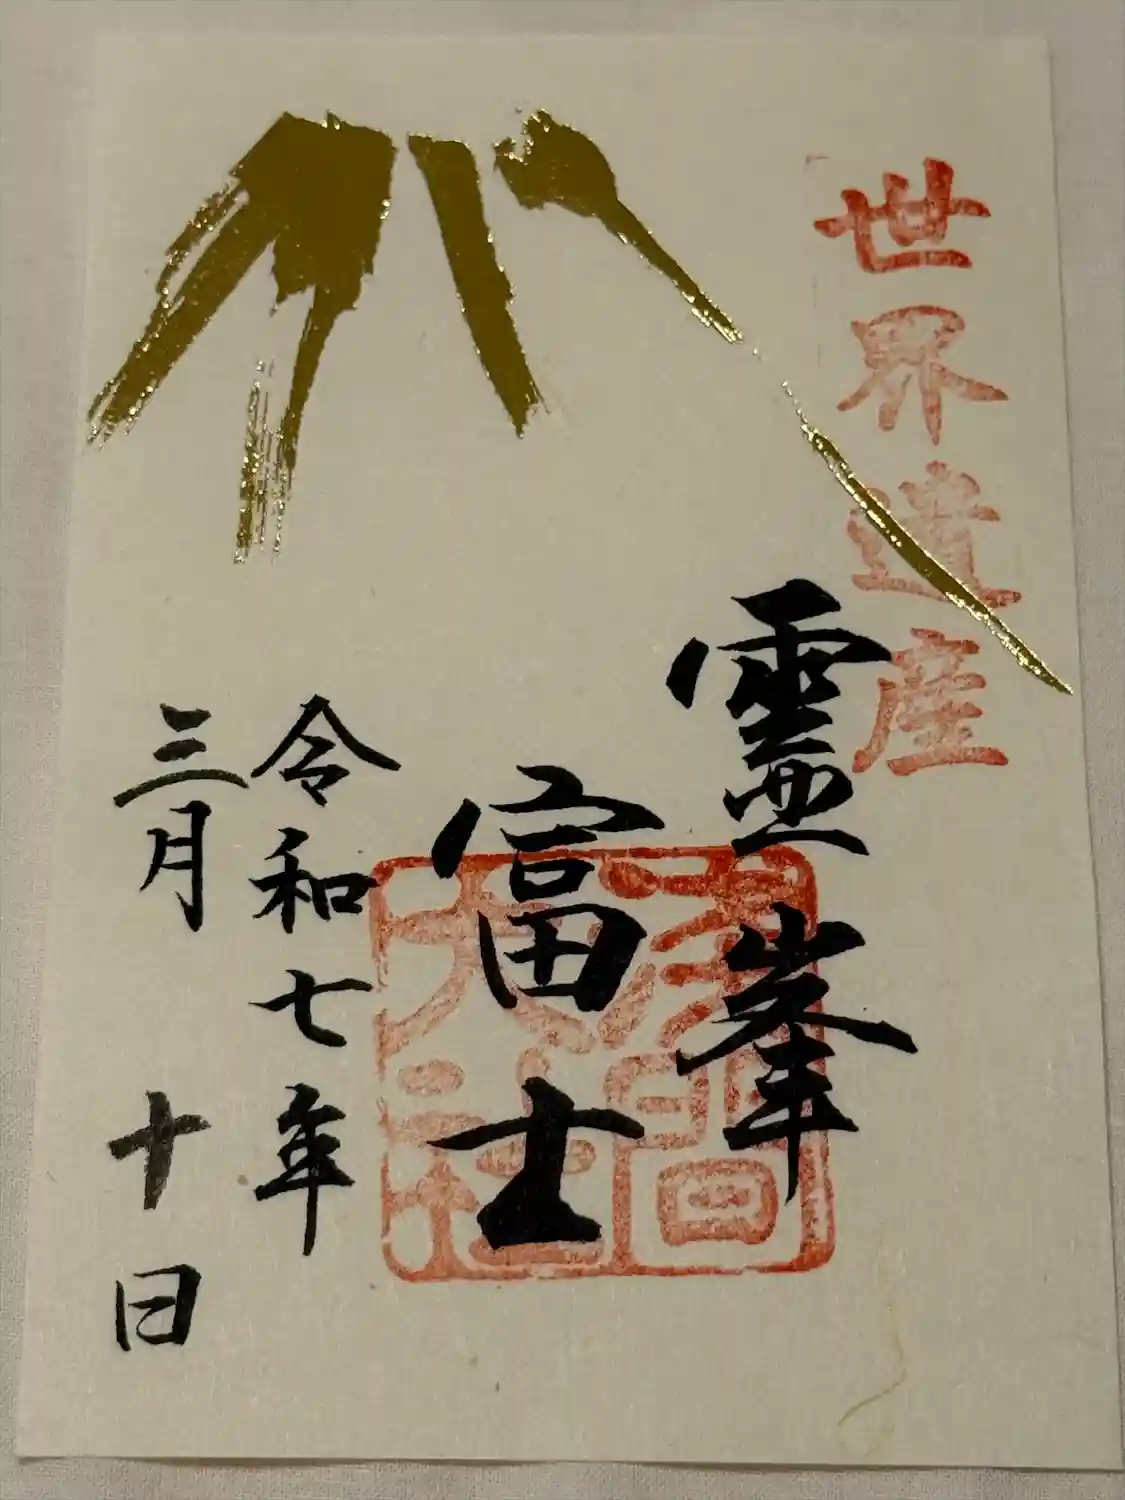 世界遺産
霊峯
富士
浅間大社
令和七年
三月十日